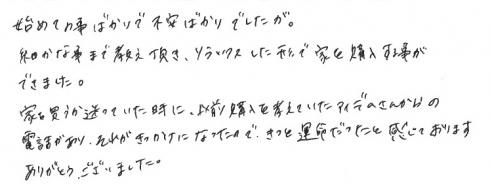 始めての事ばかりで不安ばかりでしたが。
細かな事まで教え頂き、リラックスした形で家を購入する事が
できました。
家を買うか迷っていた時に、以前購入を考えていたアイデムさんからの
電話があり、それがきっかけになったので、きっと運命だったと感じております
ありがとうございました。